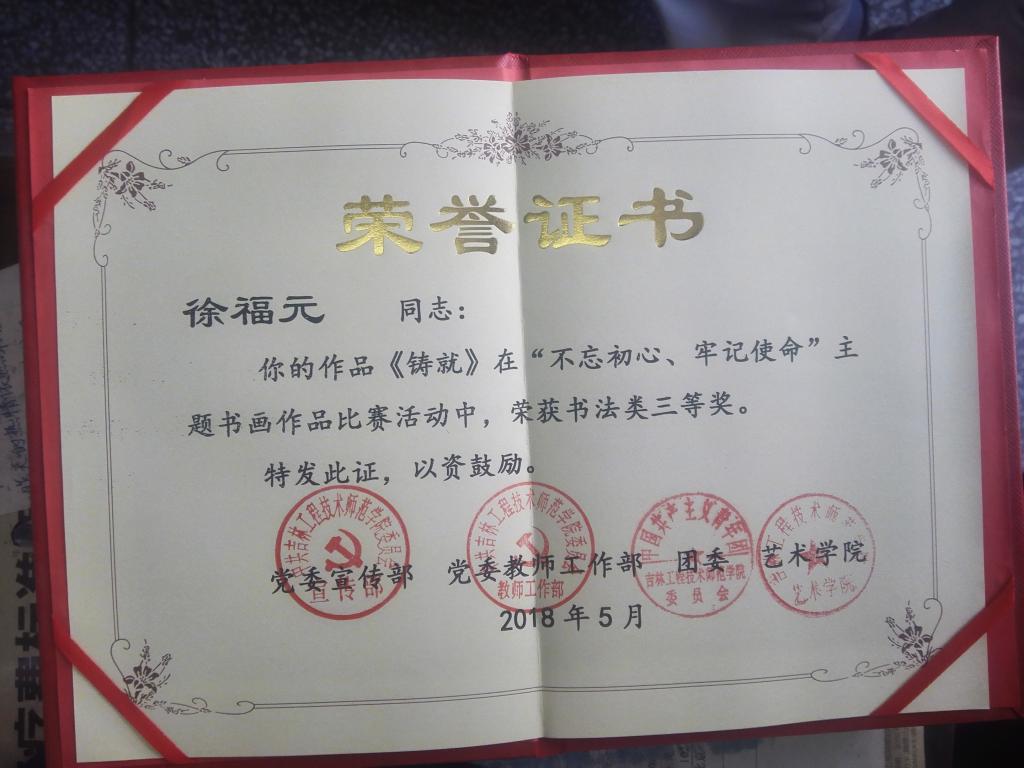 荣誉证书
徐福元 同志：
你的作品《铸就》在“不忘初心、牢记使命”主
题书画作品比赛活动中，荣获书法类三等奖。
特发此证，以资鼓励。
党委宣传部 党委教师工作部 团委 艺术学院
2018年5月
中共吉林工程技术师范学院委员会
宣传部
中共吉林工程技术师范学院委员会
教师工作部
中国共产主义青年团
吉林工程技术师范学院
委员会
吉林工程技术师范
艺术学院